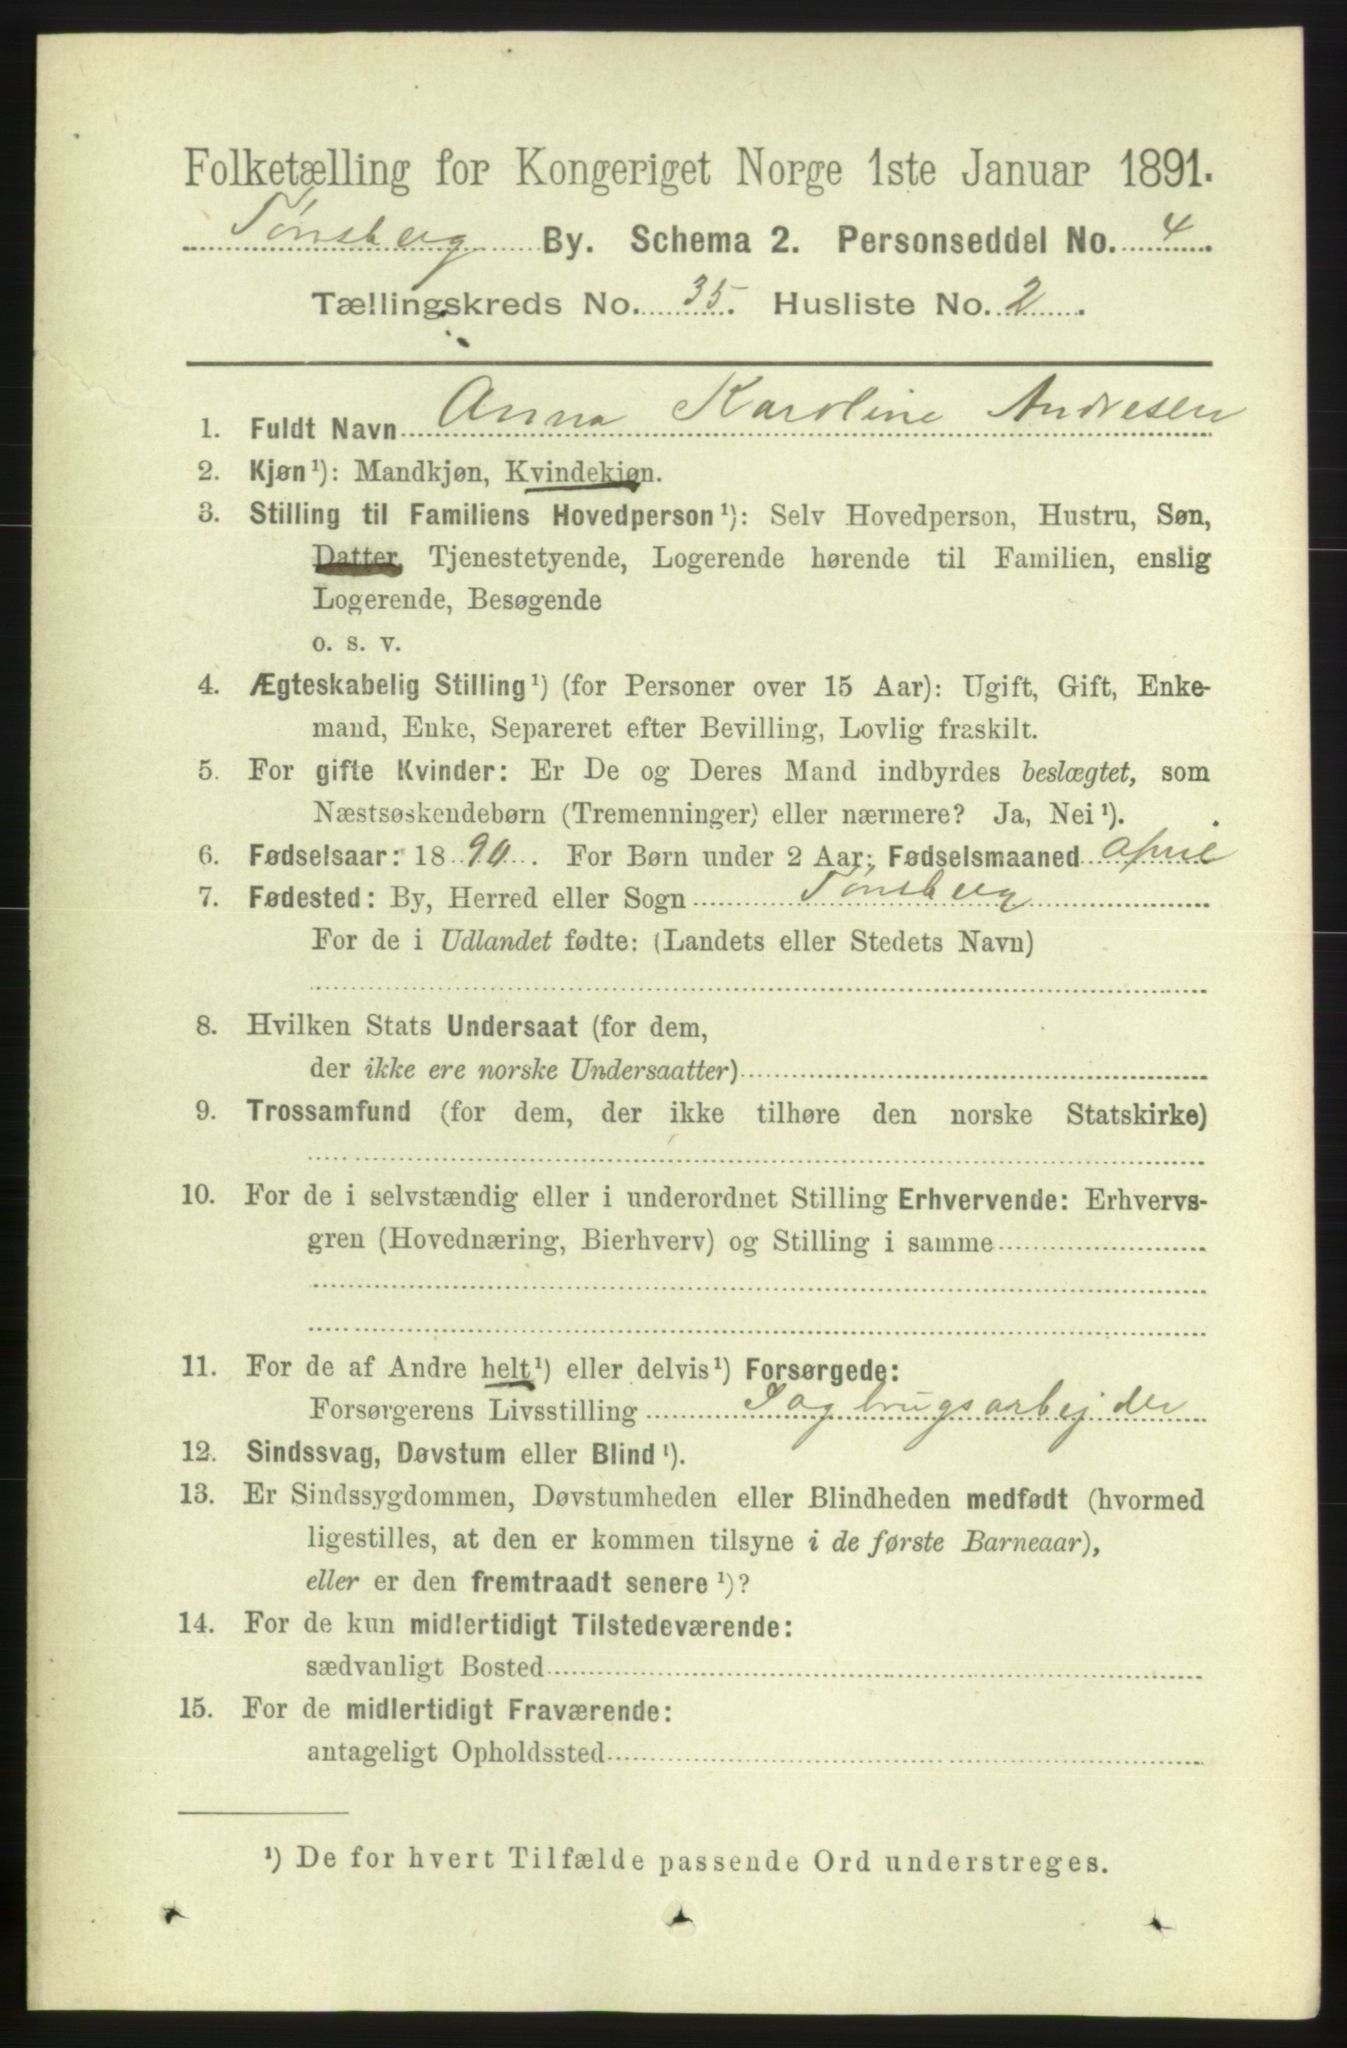 Folketælling for Kongeriget Norge 1ste Januar 1891.
Tønsberg By. Schema 2. Personseddel No. 4
Tællingskreds No. 35. Husliste No. 2.
1. Fuldt Navn Anna Karoline Andresen
2. Kjøn¹): Mandkjøn, Kvindekjøn.
3. Stilling til Familiens Hovedperson¹): Selv Hovedperson, Hustru, Søn,
Datter, Tjenestetyende, Logerende hørende til Familien, enslig
Logerende, Besøgende
o. s. v.
4. Ægteskabelig Stilling¹) (for Personer over 15 Aar): Ugift, Gift, Enke-
mand, Enke, Separeret efter Bevilling, Lovlig fraskilt.
5. For gifte Kvinder: Er De og Deres Mand indbyrdes beslægtet, som
Næstsøskendebørn (Tremenninger) eller nærmere? Ja, Nei¹).
6. Fødselsaar: 1890. For Børn under 2 Aar: Fødselsmaaned April
7. Fødested: By, Herred eller Sogn Tønsberg
For de i Udlandet fødte: (Landets eller Stedets Navn)
8. Hvilken Stats Undersaat (for dem,
der ikke ere norske Undersaatter)
9. Trossamfund (for dem, der ikke tilhøre den norske Statskirke)
10. For de i selvstændig eller i underordnet Stilling Erhvervende: Erhvervs-
gren (Hovednæring, Bierhverv) og Stilling i samme
11. For de af Andre helt¹) eller delvis¹) Forsørgede:
Forsørgerens Livsstilling Sagbrugsarbejder
12. Sindssvag, Døvstum eller Blind¹).
13. Er Sindssygdommen, Døvstumheden eller Blindheden medfødt (hvormed
ligestilles, at den er kommen tilsyne i de første Barneaar),
eller er den fremtraadt senere¹)?
14. For de kun midlertidigt Tilstedeværende:
sædvanligt Bosted
15. For de midlertidigt Fraværende:
antageligt Opholdssted
¹) De for hvert Tilfælde passende Ord understreges.